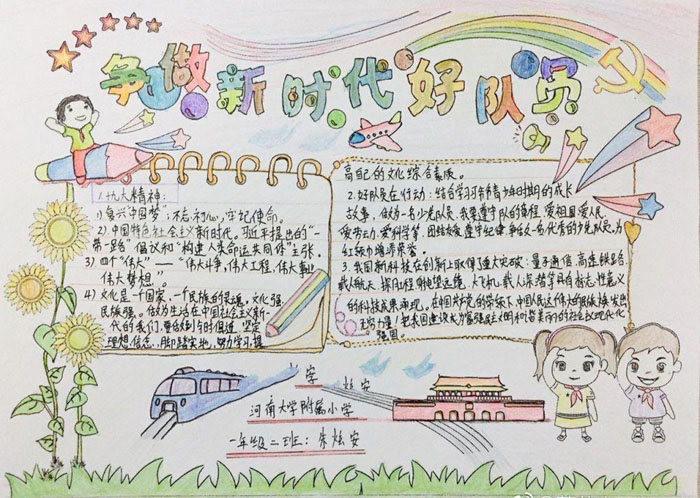 争做新时代好队员
1.十九大精神:
1)复兴中国梦,不忘初心,牢记使命。
2)中国特色社会主义新时代。习近平提出的“一
带一路”倡议和“构建人类命运共同体”主张。
3)四个“伟大”——“伟大斗争,伟大工程,伟大事业
伟大梦想”。
4)文化是一个国家、一个民族的灵魂。文化强
民族强。做为生活在中国社会主义新一
代的我们,要做到与时俱进,坚定
理想信念,脚踏实地,努力学习,提
高自己的文化综合素质。
2.好队员在行动:结合学习习爷爷青少年时期的成长
故事,做为一名少先队员,我要遵守队的章程,爱祖国爱人民,
爱劳动,爱科学,团结友爱,遵守纪律,争做一名优秀的少先队员,为
红领巾增添荣誉。
3.我国新科技在创新上取得了重大突破:量子通信,高速铁路,
载人航天,探月工程,大飞机,载人深潜等具有标志性意义
的科技成果涌现。在中国共产党的领导下,中国人民这个伟大的民族
把我国建设成为富强民主文明和谐美丽的社会主义现代化
强国!
河南大学附属小学
一年级二班:朱炫安